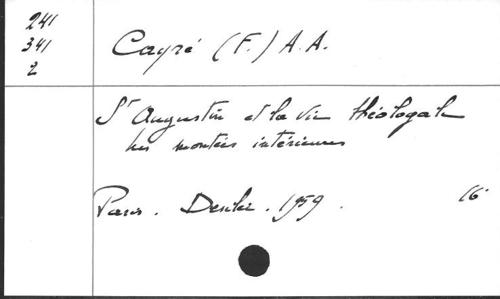 241
341
2
Cayré (F.) A.A.
St Augustin et la vie théologale
les montées intérieures
Paris. Desclée. 1959. 16°